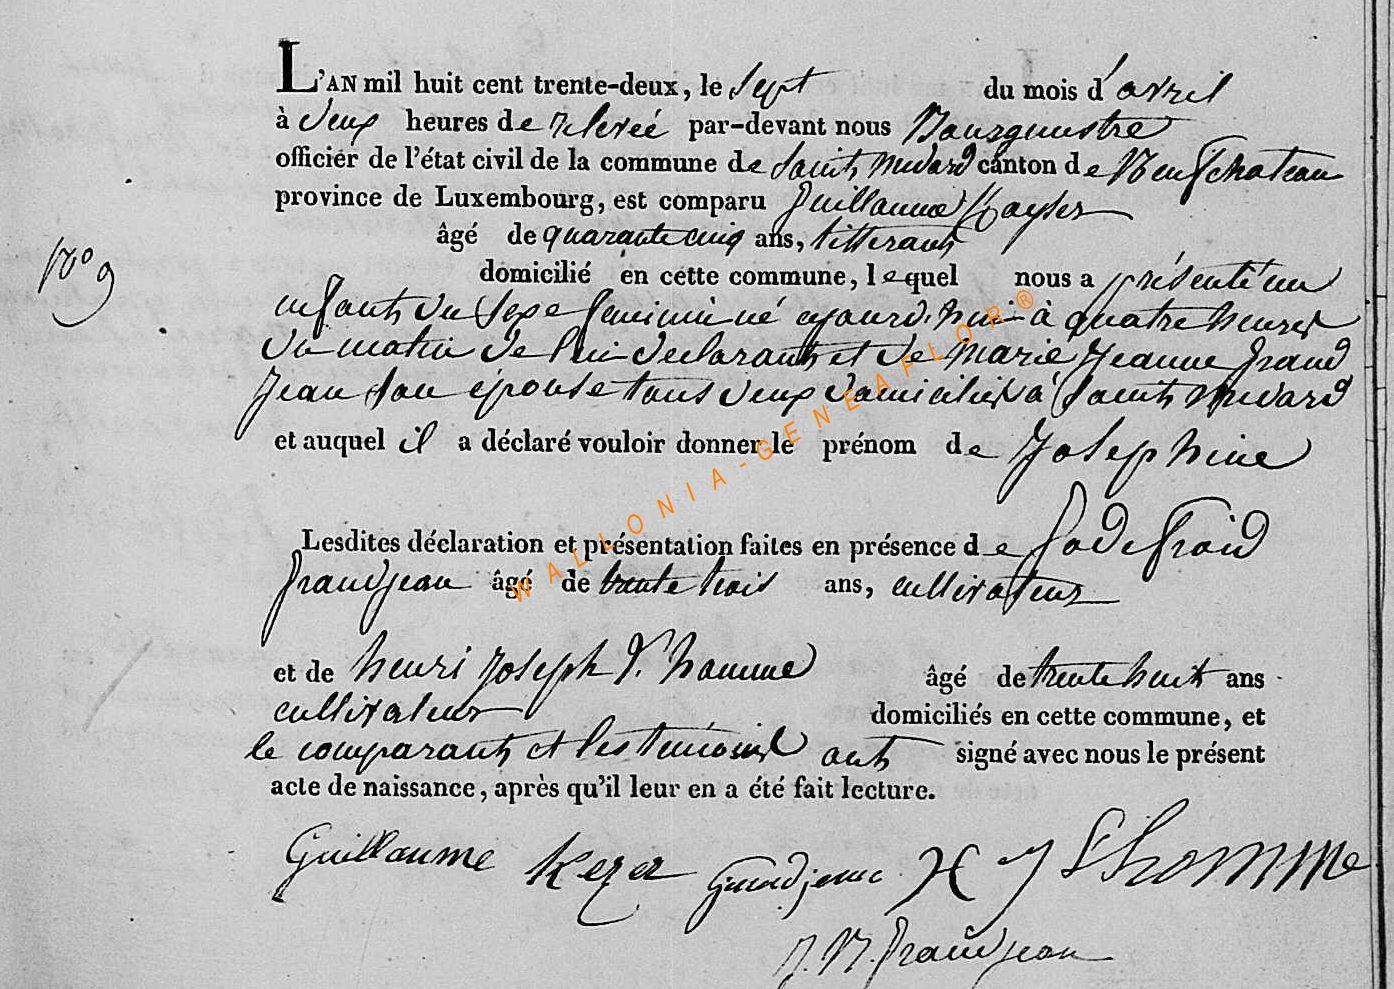 L'AN mil huit cent trente-deux, le Sept du mois d'avril
à deux heures de relevée par-devant nous Bourguestre
officier de l'état civil de la commune de Saint Medard canton de Neufchateau
province de Luxembourg, est comparu Guillaume Kayser
âgé de quarante cinq ans, tisserant
domicilié en cette commune, lequel nous a présenté un
N° 9
enfant du Sexe feminin né ajourd'hui à quatre heures
du matin de lui declarant et de Marie Jeanne Grand
Jean Son épouse tous deux domiciliés à Saint Medard
et auquel il a déclaré vouloir donner le prénom de Josephine
Lesdites déclaration et présentation faites en présence de Godefroid
Grandjean âgé de trente trois ans, cultivateur
et de henri Joseph L'homme âgé de trente huit ans
cultivateur domiciliés en cette commune, et
le comparant et les temoins ont signé avec nous le présent
acte de naissance, après qu'il leur en a été fait lecture.
Guillaume Kezer Grandjean H J Lhomme
J. N. Grandjean
WALLONIA-GENEAFLOR®